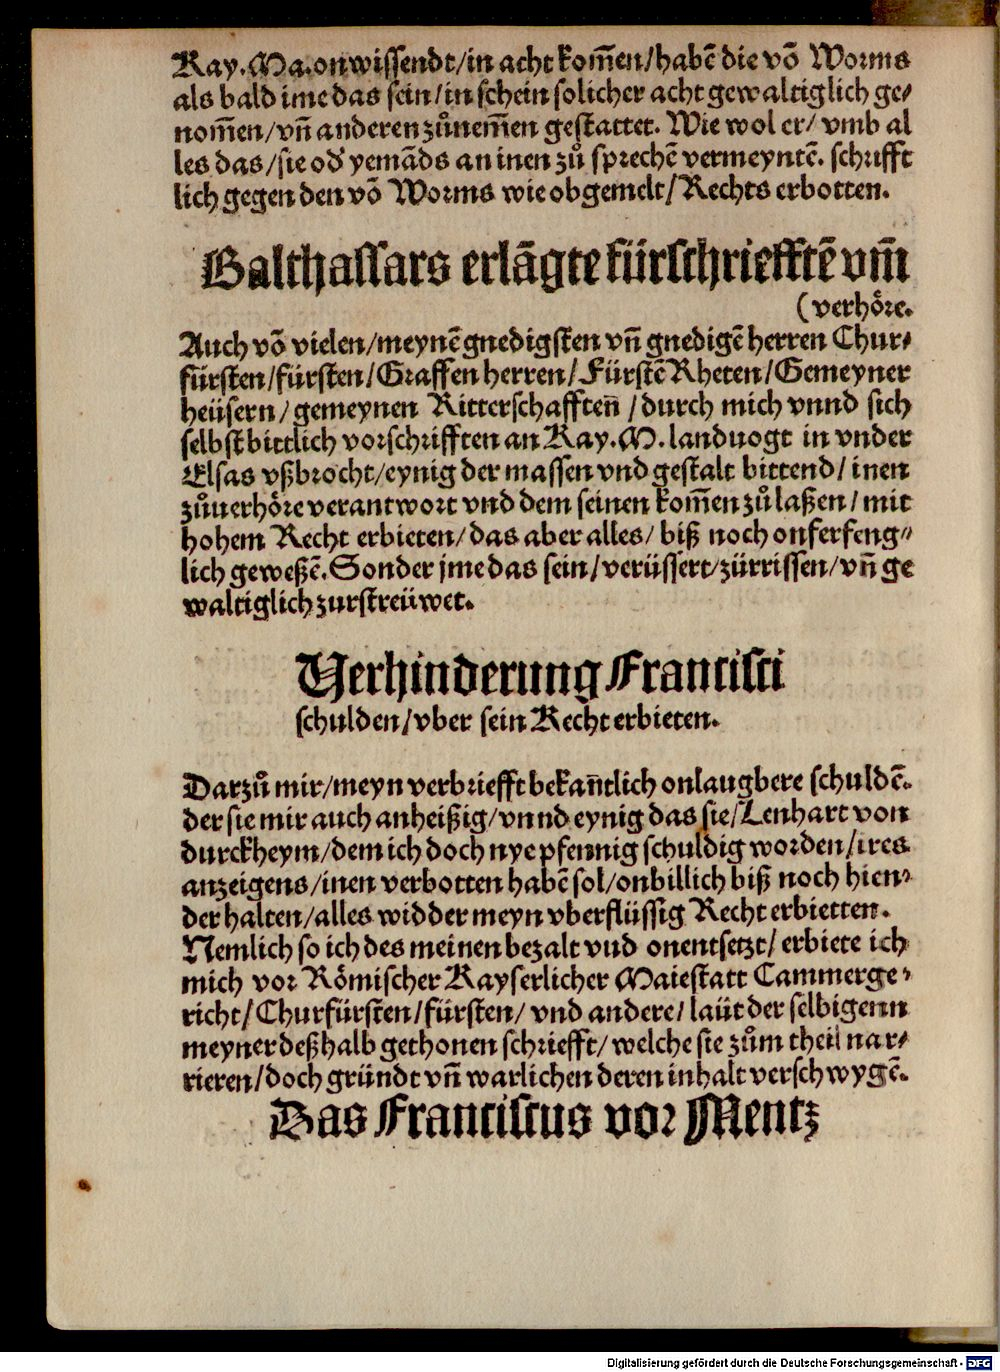 Kay. Ma. onwissendt/in acht kom̄en/habē die vō Worms
als bald ime das sein/in schein solicher acht gewaltiglich ge⸗
nom̄en/vn̄ anderen zůnem̄en gestattet. Wie wol er/ vmb al
les das/sie od' yemāds an inen zů sprechē vermeyntē. schrifft
lich gegen den vō Worms wie obgemelt/Rechts erbotten.
Balthassars erlāgte fürschriefftē vm̄
(verhöre.
Auch vō vielen/meynē gnedigsten vn̄ gnedigē herren Chur⸗
fürsten/fürsten/Graffen herren/Fürstē Rheten/Gemeyner
heüsern/gemeynen Ritterschafften̄ /durch mich vnnd sich
selbst bittlich vorschrifften an Kay. M. landuogt in vnder
Elsas vßbrocht/eynig der massen vnd gestalt bittend/ inen
zůuerhöre verantwort vnd dem seinen kom̄en zů laßen/ mit
hohem Recht erbieten/das aber alles/ biß noch onferfeng⸗
lich geweßē. Sonder jme das sein/verüssert/zürrissen/vn̄ ge
waltiglich zurstreüwet.
Verhinderung Francisci
schulden/vber sein Recht erbieten.
Darzů mir/meyn verbriefft bekan̄tlich onlaugbere schuldē.
der sie mir auch anheißig/vnnd eynig das sie/Lenhart von
durckheym/dem ich doch nye pfennig schuldig worden/ires
anzeigens/inen verbotten habē sol/onbillich biß noch hien⸗
der halten/alles widder meyn vberflüssig Recht erbietten.
Nemlich so ich des meinen bezalt vnd onentsetzt/ erbiete ich
mich vor Römischer Kayserlicher Maiestatt Cammerge⸗
richt/Churfürsten/fürsten/ vnd andere/ laüt der selbigenn
meyner deßhalb gethonen schriefft/ welche sie zům theil nar⸗
rieren/doch gründt vn̄ warlichen deren inhalt verschwygē.
Das Franciscus vor Mentz
Digitalisierung gefördert durch die Deutsche Forschungsgemeinschaft - DFG